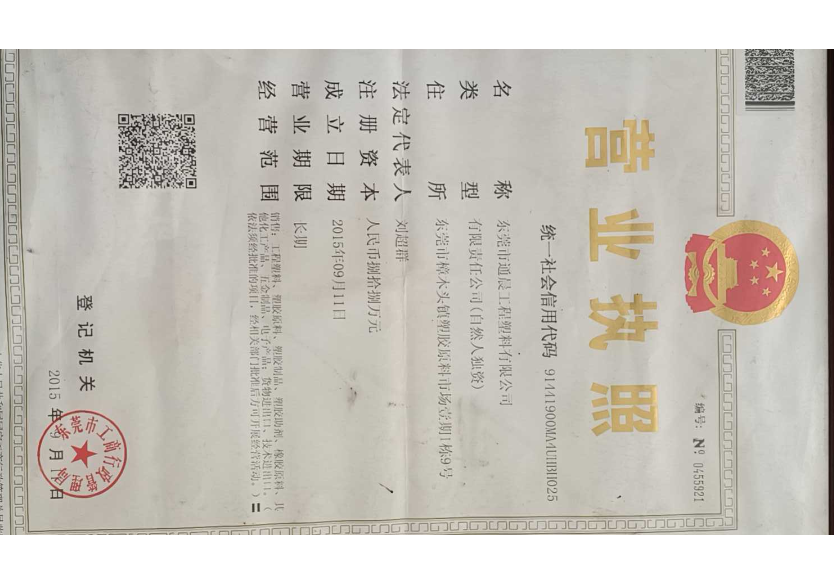 编号: № 0455921
营业执照
统一社会信用代码 91441900MA4UHBH025
名称 东莞市通晨工程塑料有限公司
类型 有限责任公司(自然人独资)
住所 东莞市樟木头镇塑胶原料市场壹期1栋9号
法定代表人 刘超群
注册资本 人民币捌拾捌万元
成立日期 2015年09月11日
营业期限 长期
经营范围 销售:工程塑料、塑胶原料、塑胶制品、塑胶助剂、橡胶原料、其
他化工产品、五金制品、电子产品;货物进出口、技术进出口。(
依法须经批准的项目,经相关部门批准后方可开展经营活动。)=
登记机关
东莞市工商行政管理局
2015 年 9 月 日